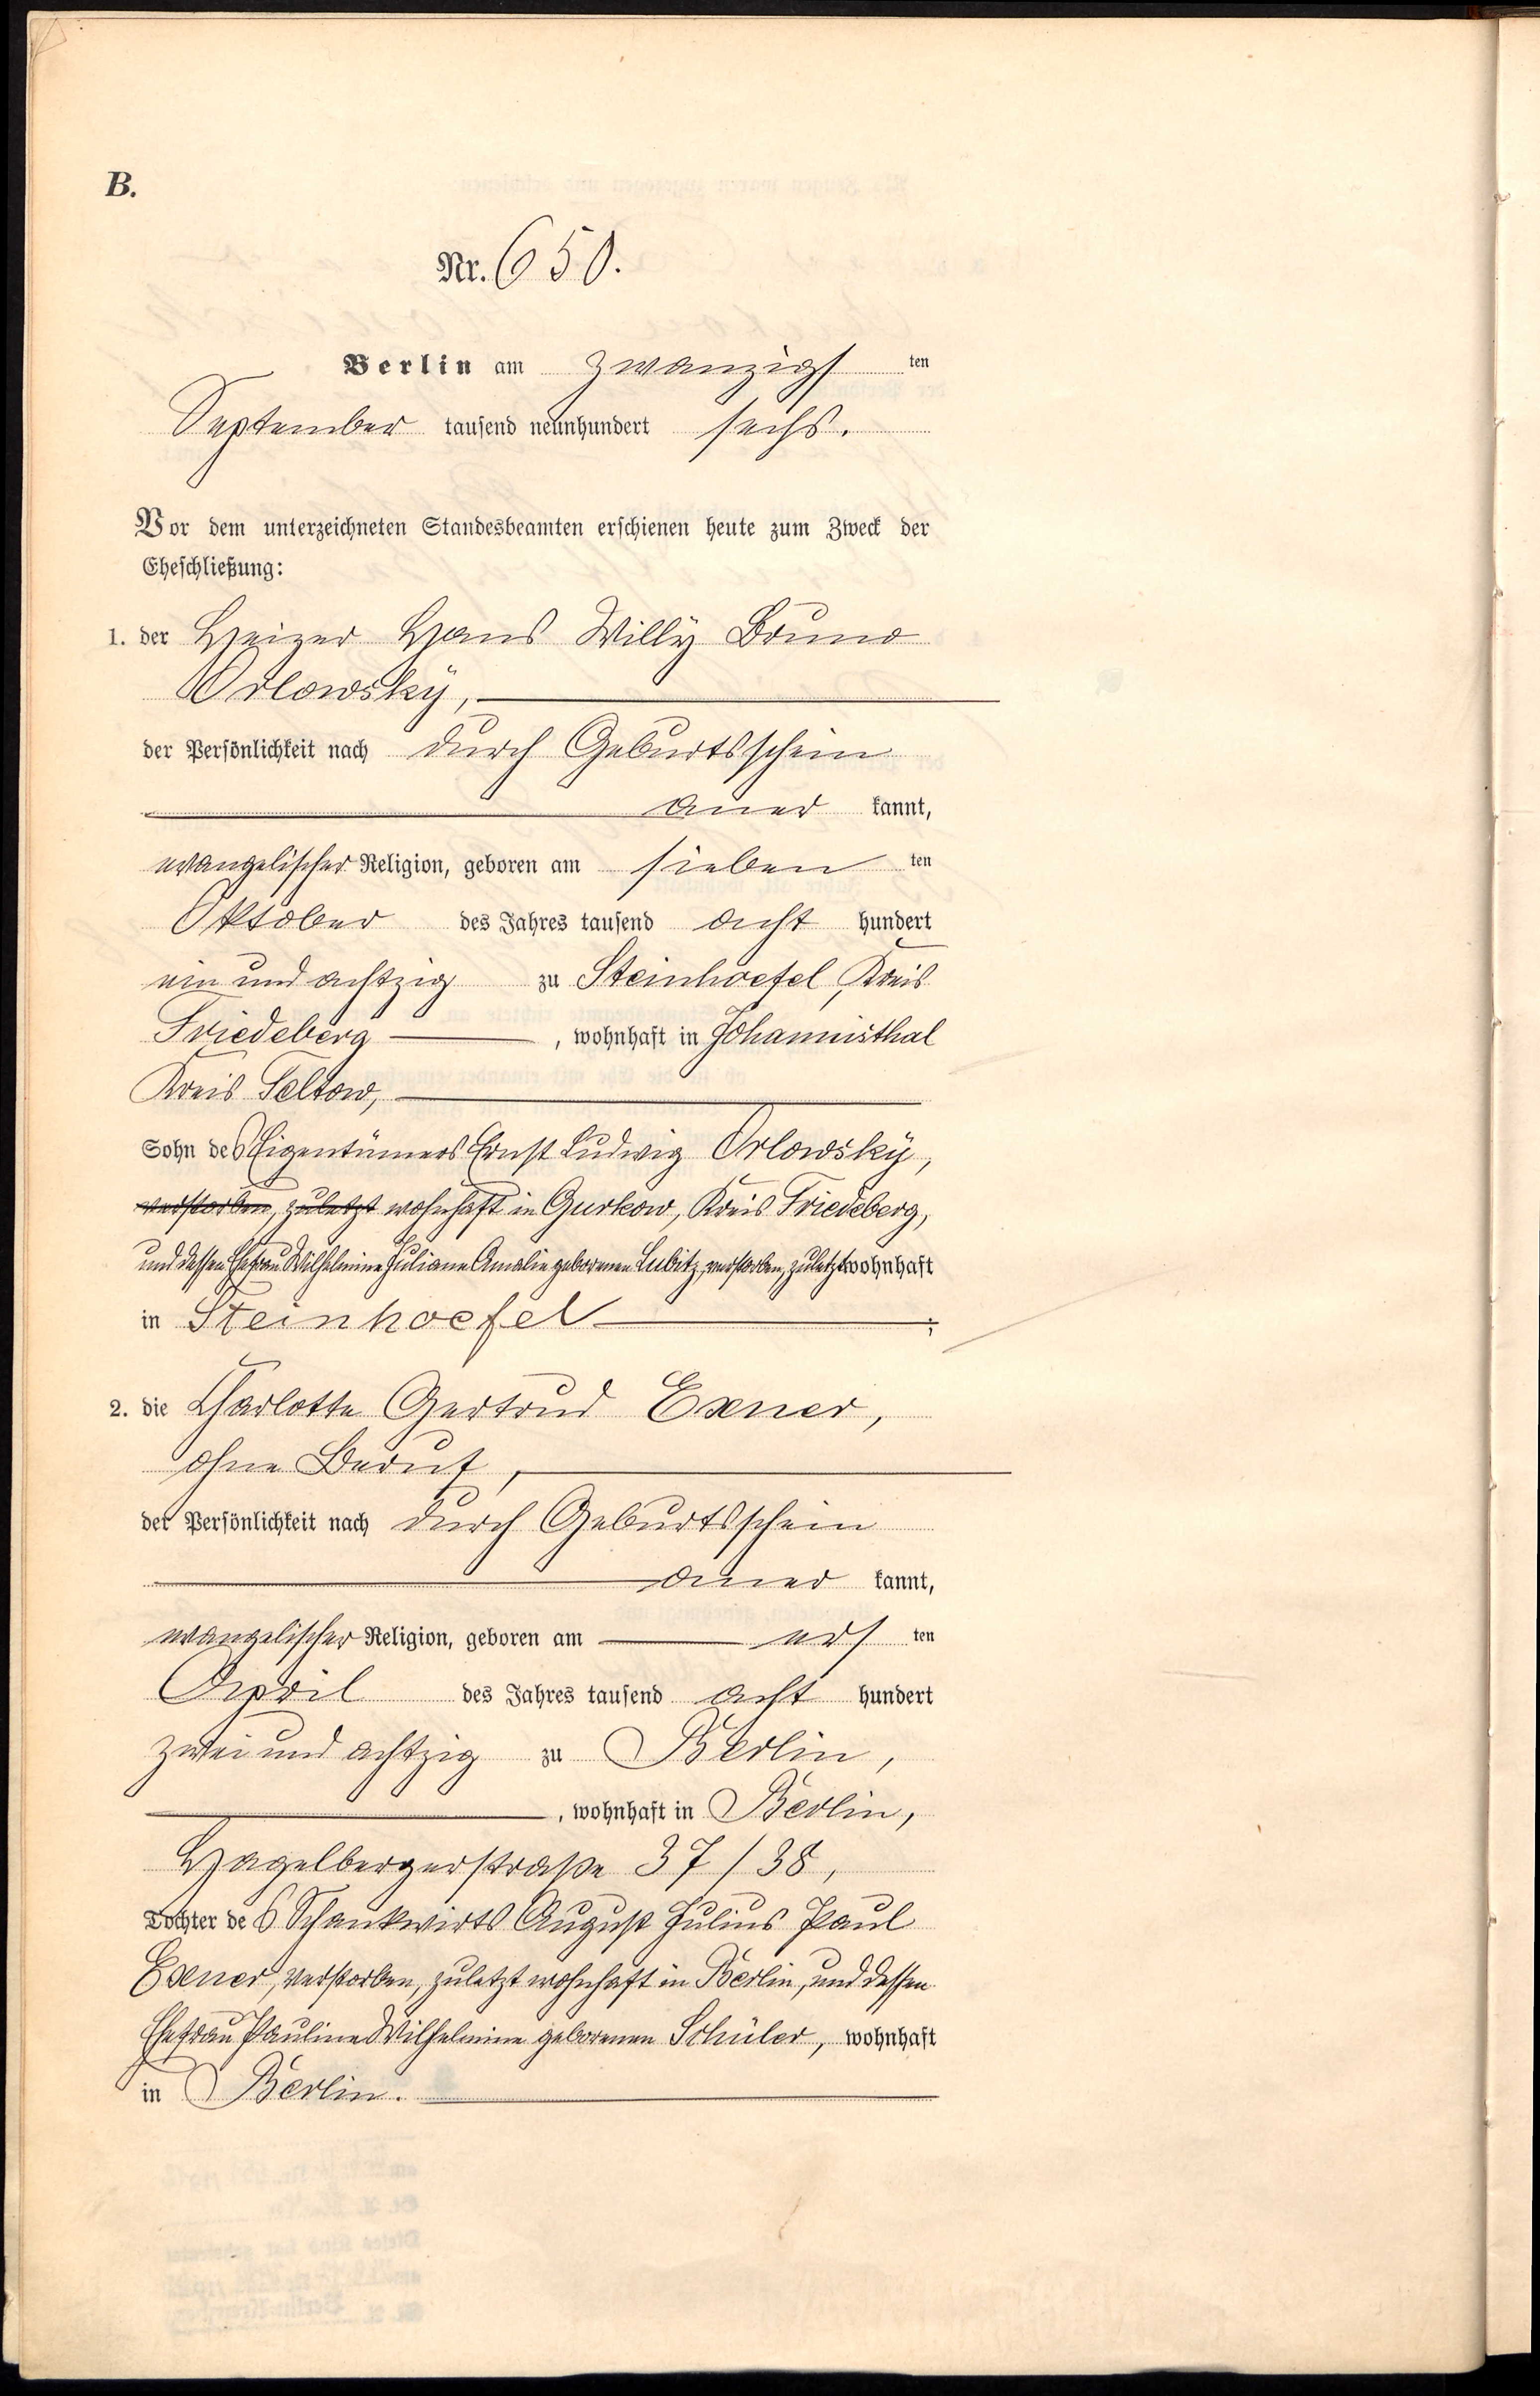 B.
Nr. 650.
Berlin am zwanzigsten
September tausend neunhundert sechs.
Vor dem unterzeichneten Standesbeamten erschienen heute zum Zweck der
Eheschließung:
1. der Heizer Hans Willy Bruno
Orlowsky,
der Persönlichkeit nach durch Geburtsschein
aner kannt,
evangelischer Religion, geboren am sieben ten
Oktober des Jahres tausend acht hundert
ein und achtzig zu Steinhoefel, Kreis
Friedeberg, wohnhaft in Johannisthal
Kreis Teltow,
Sohn des Eigentümers Ernst Ludwig Orlowsky,
verstorben, zuletzt wohnhaft in Gurkow, Kreis Friedeberg,
und dessen Ehefrau Wilhelmine Juliane Amalie geborenen Lubitz, verstorben, zuletzt wohnhaft
in Steinhoefel;
2. die Charlotte Gertrud Exner,
ohne Beruf,
der Persönlichkeit nach durch Geburtsschein
aner kannt,
evangelischer Religion, geboren am ersten
April des Jahres tausend acht hundert
zwei und achtzig zu Berlin,
, wohnhaft in Berlin,
Hagelbergerstraße 37/38,
Tochter des Schankwirts August Julius Paul
Exner, verstorben, zuletzt wohnhaft in Berlin, und dessen
Ehefrau Pauline Wilhelmine geborenen Schüler, wohnhaft
in Berlin.